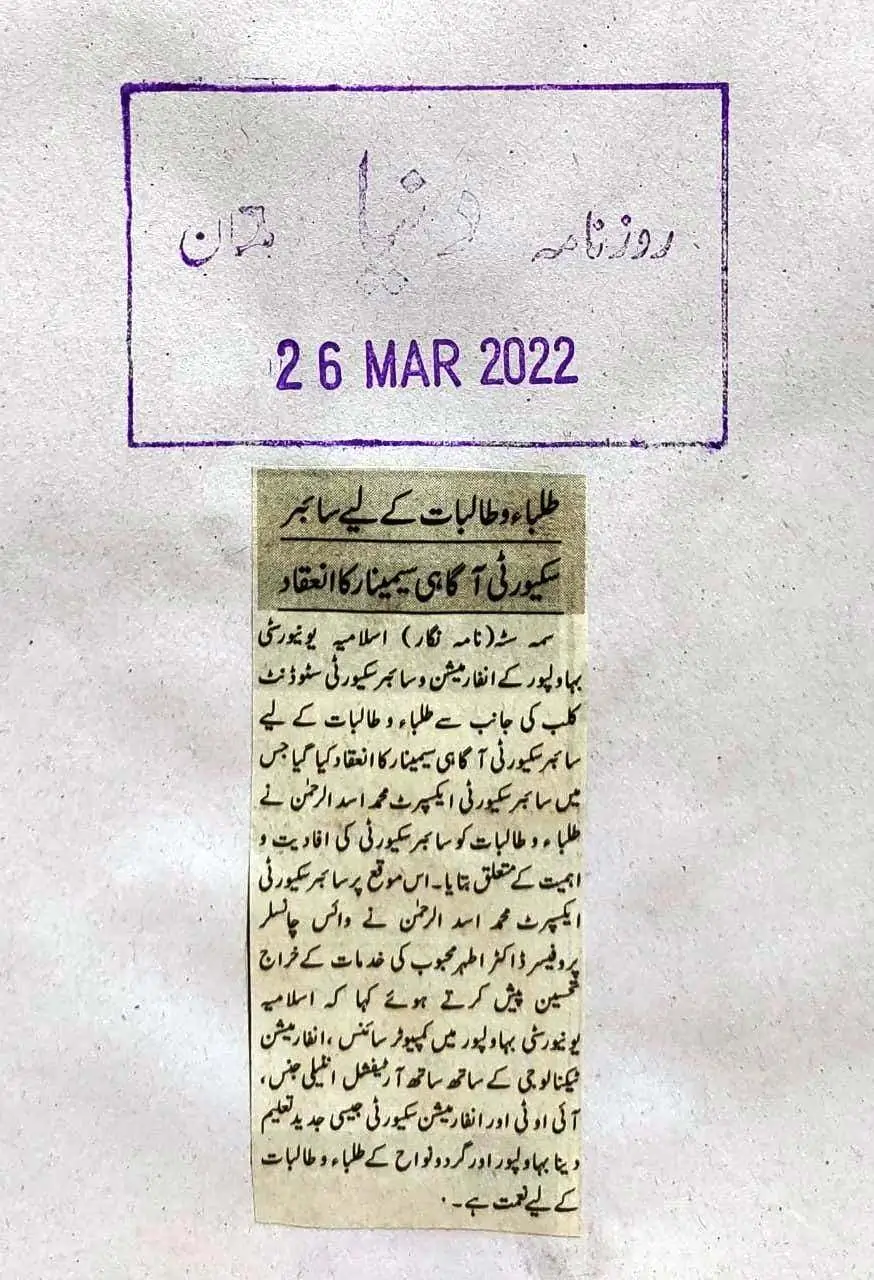 روزنامہ دنیا ملتان
26 MAR 2022
طلباء و طالبات کے لیے سائبر
سکیورٹی آگاہی سیمینار کا انعقاد
سمہ سٹہ (نامہ نگار) اسلامیہ یونیورسٹی
بہاولپور کے انفارمیشن و سائبر سکیورٹی سٹوڈنٹ
کلب کی جانب سے طلباء و طالبات کے لیے
سائبر سکیورٹی آگاہی سیمینار کا انعقاد کیا گیا جس
میں سائبر سکیورٹی ایکسپرٹ محمد اسد الرحمٰن نے
طلباء و طالبات کو سائبر سکیورٹی کی افادیت و
اہمیت کے متعلق بتایا۔ اس موقع پر سائبر سکیورٹی
ایکسپرٹ محمد اسد الرحمٰن نے وائس چانسلر
پروفیسر ڈاکٹر اطہر محبوب کی خدمات کے خراج
تحسین پیش کرتے ہوئے کہا کہ اسلامیہ
یونیورسٹی بہاولپور میں کمپیوٹر سائنس، انفارمیشن
ٹیکنالوجی کے ساتھ ساتھ آرٹیفشل انٹیلی جنس،
آئی او ٹی اور انفارمیشن سکیورٹی جیسی جدید تعلیم
دینا بہاولپور اور گردونواح کے طلباء و طالبات
کے لیے نعمت ہے۔